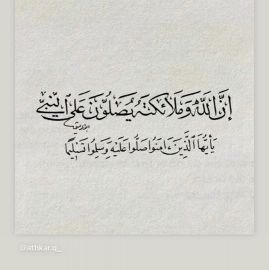 إِنَّ اللَّهَ وَمَلَائِكَتَهُ يُصَلُّونَ عَلَى النَّبِيِّ
يَا أَيُّهَا الَّذِينَ ءَامَنُوا صَلُّوا عَلَيْهِ وَسَلِّمُوا تَسْلِيمًا
@athkarq_